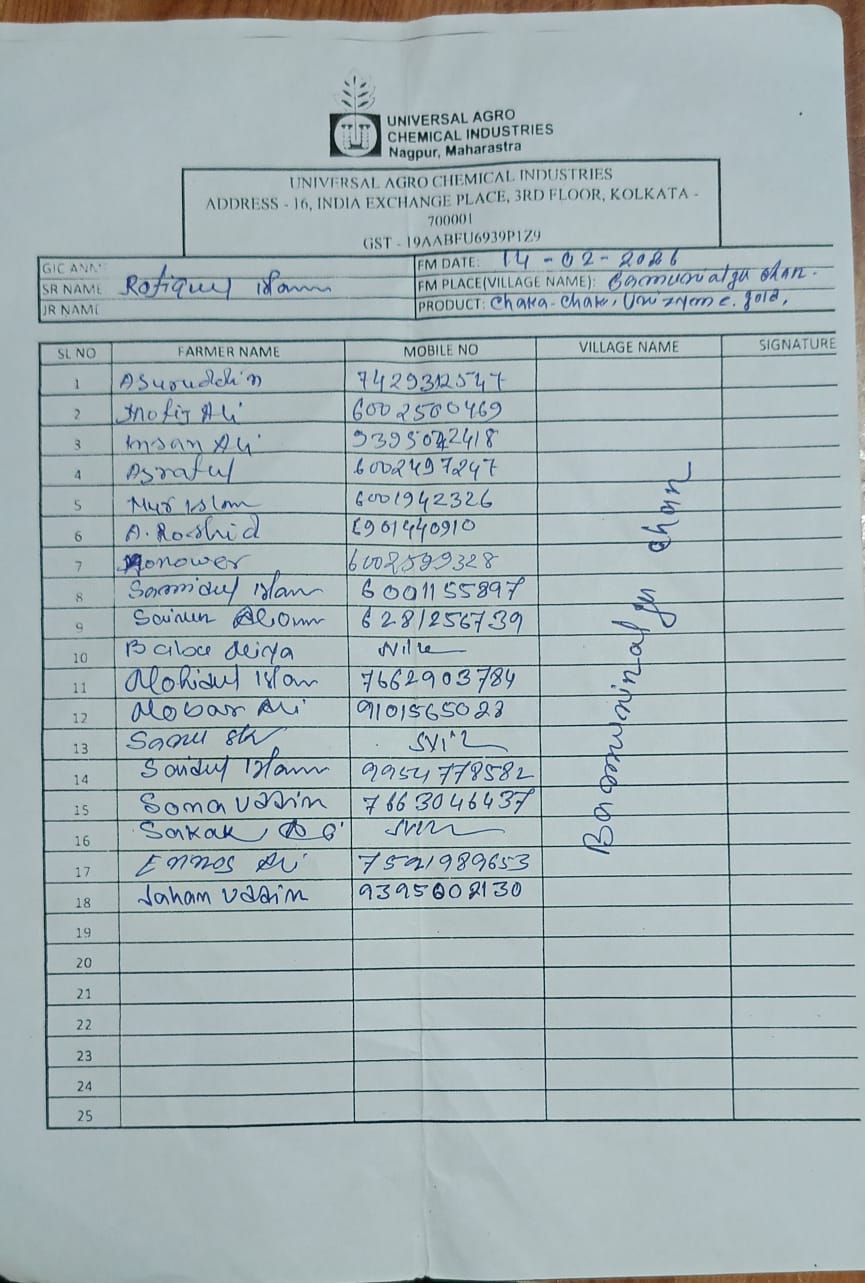 UNIVERSAL AGRO
CHEMICAL INDUSTRIES
Nagpur, Maharastra
UNIVERSAL AGRO CHEMICAL INDUSTRIES
ADDRESS - 16, INDIA EXCHANGE PLACE, 3RD FLOOR, KOLKATA -
700001
GST - 19AABFU6939P1Z9
GIC ANN FM DATE: 14-02-2026
SR NAME Rofiqul Islam FM PLACE(VILLAGE NAME):
JR NAME PRODUCT: Chaka-Chak, Unizyme gold,
SL NO FARMER NAME MOBILE NO VILLAGE NAME SIGNATURE
1 Asuruddin
2 Mofiz Ali 6002500469
3 Insan Ali
4 Asraful 6002497247
5 Nur Islam 6001942326
6 A. Roshid 6901440910
7 Monower 6002599328
8 Samidul Islam 6001155897
9 Alom 6281256739
10
11 Mohidul Islam 7662903784
12 Mobar Ali 9101565023
13
14 Saidul Islam 9954778582
15 Sona Uddin 7663046437
16
17 Ennos Ali
18 Jahan Uddin 9395602130
19
20
21
22
23
24
25